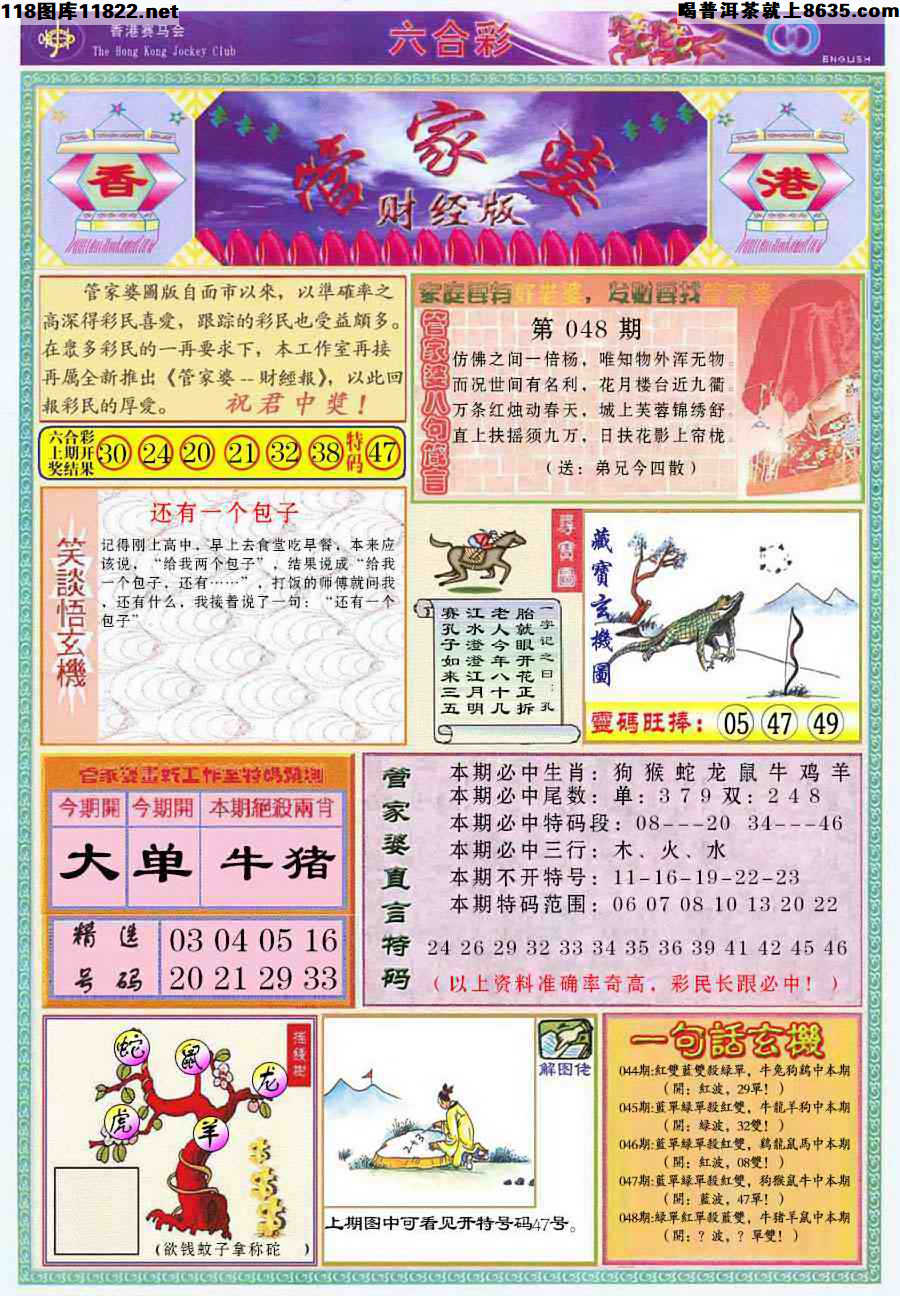 118图库11822.net
喝普洱茶就上8635.com
香港赛马会
The Hong Kong Jockey Club
六合彩
ENGLISH
香
管家婆
财经版
港
管家婆圖版自面市以來，以準確率之
高深得彩民喜愛，跟踪的彩民也受益頗多。
在衆多彩民的一再要求下，本工作室再接
再属全新推出《管家婆--財經報》，以此回
報彩民的厚愛。 祝君中獎！
六合彩
上期开
奖结果
30 24 20 21 32 38 特码 47
家庭要有好老婆，发财要找管家婆
管家婆八句箴言
第 048 期
仿佛之间一倍杨，唯知物外浑无物。
而况世间有名利，花月楼台近九衢。
万条红烛动春天，城上芙蓉锦绣舒。
直上扶摇须九万，日扶花影上帘栊。
（送：弟兄今四散）
笑談悟玄機
还有一个包子
记得刚上高中，早上去食堂吃早餐，本来应
该说，“给我两个包子”，结果说成“给我
一个包子，还有……”，打饭的师傅就问我
，还有什么，我接着说了一句：“还有一个
包子”
尋寶圖
一字记之曰：孔
胎就眼开花正拆
老人今年八十几
江水澄澄江月明
赛孔子如来三五
藏寶玄機圖
靈碼旺捧：05 47 49
管家婆畫新工作室特碼預測
今期開 今期開 本期絕殺兩肖
大 单 牛猪
精选
号码
03 04 05 16
20 21 29 33
管家婆直言特码
本期必中生肖：狗 猴 蛇 龙 鼠 牛 鸡 羊
本期必中尾数：单：3 7 9 双：2 4 8
本期必中特码段：08---20 34---46
本期必中三行：木、火、水
本期不开特号：11-16-19-22-23
本期特码范围：06 07 08 10 13 20 22
24 26 29 32 33 34 35 36 39 41 42 45 46
（以上资料准确率奇高，彩民长跟必中！）
摇錢樹
蛇
鼠
龙
虎
羊
（欲钱蚊子拿称砣 ）
解图佬
243
上期图中可看见开特号码47号。
一句話玄機
044期:紅雙藍雙殺綠單，牛兔狗鷄中本期
（開：紅波，29單！）
045期:藍單綠單殺紅雙，牛龍羊狗中本期
（開：綠波，32雙！）
046期:藍單綠單殺紅雙，鷄龍鼠馬中本期
（開：紅波，08雙！）
047期:藍單綠單殺紅雙，狗猴鼠牛中本期
（開：藍波，47單！）
048期:綠單紅單殺藍雙，牛猪羊鼠中本期
（開：？波，？單雙！）